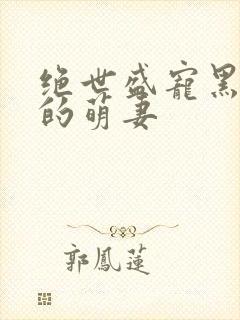 绝世盛宠黑
的萌妻
郭鳳蓮